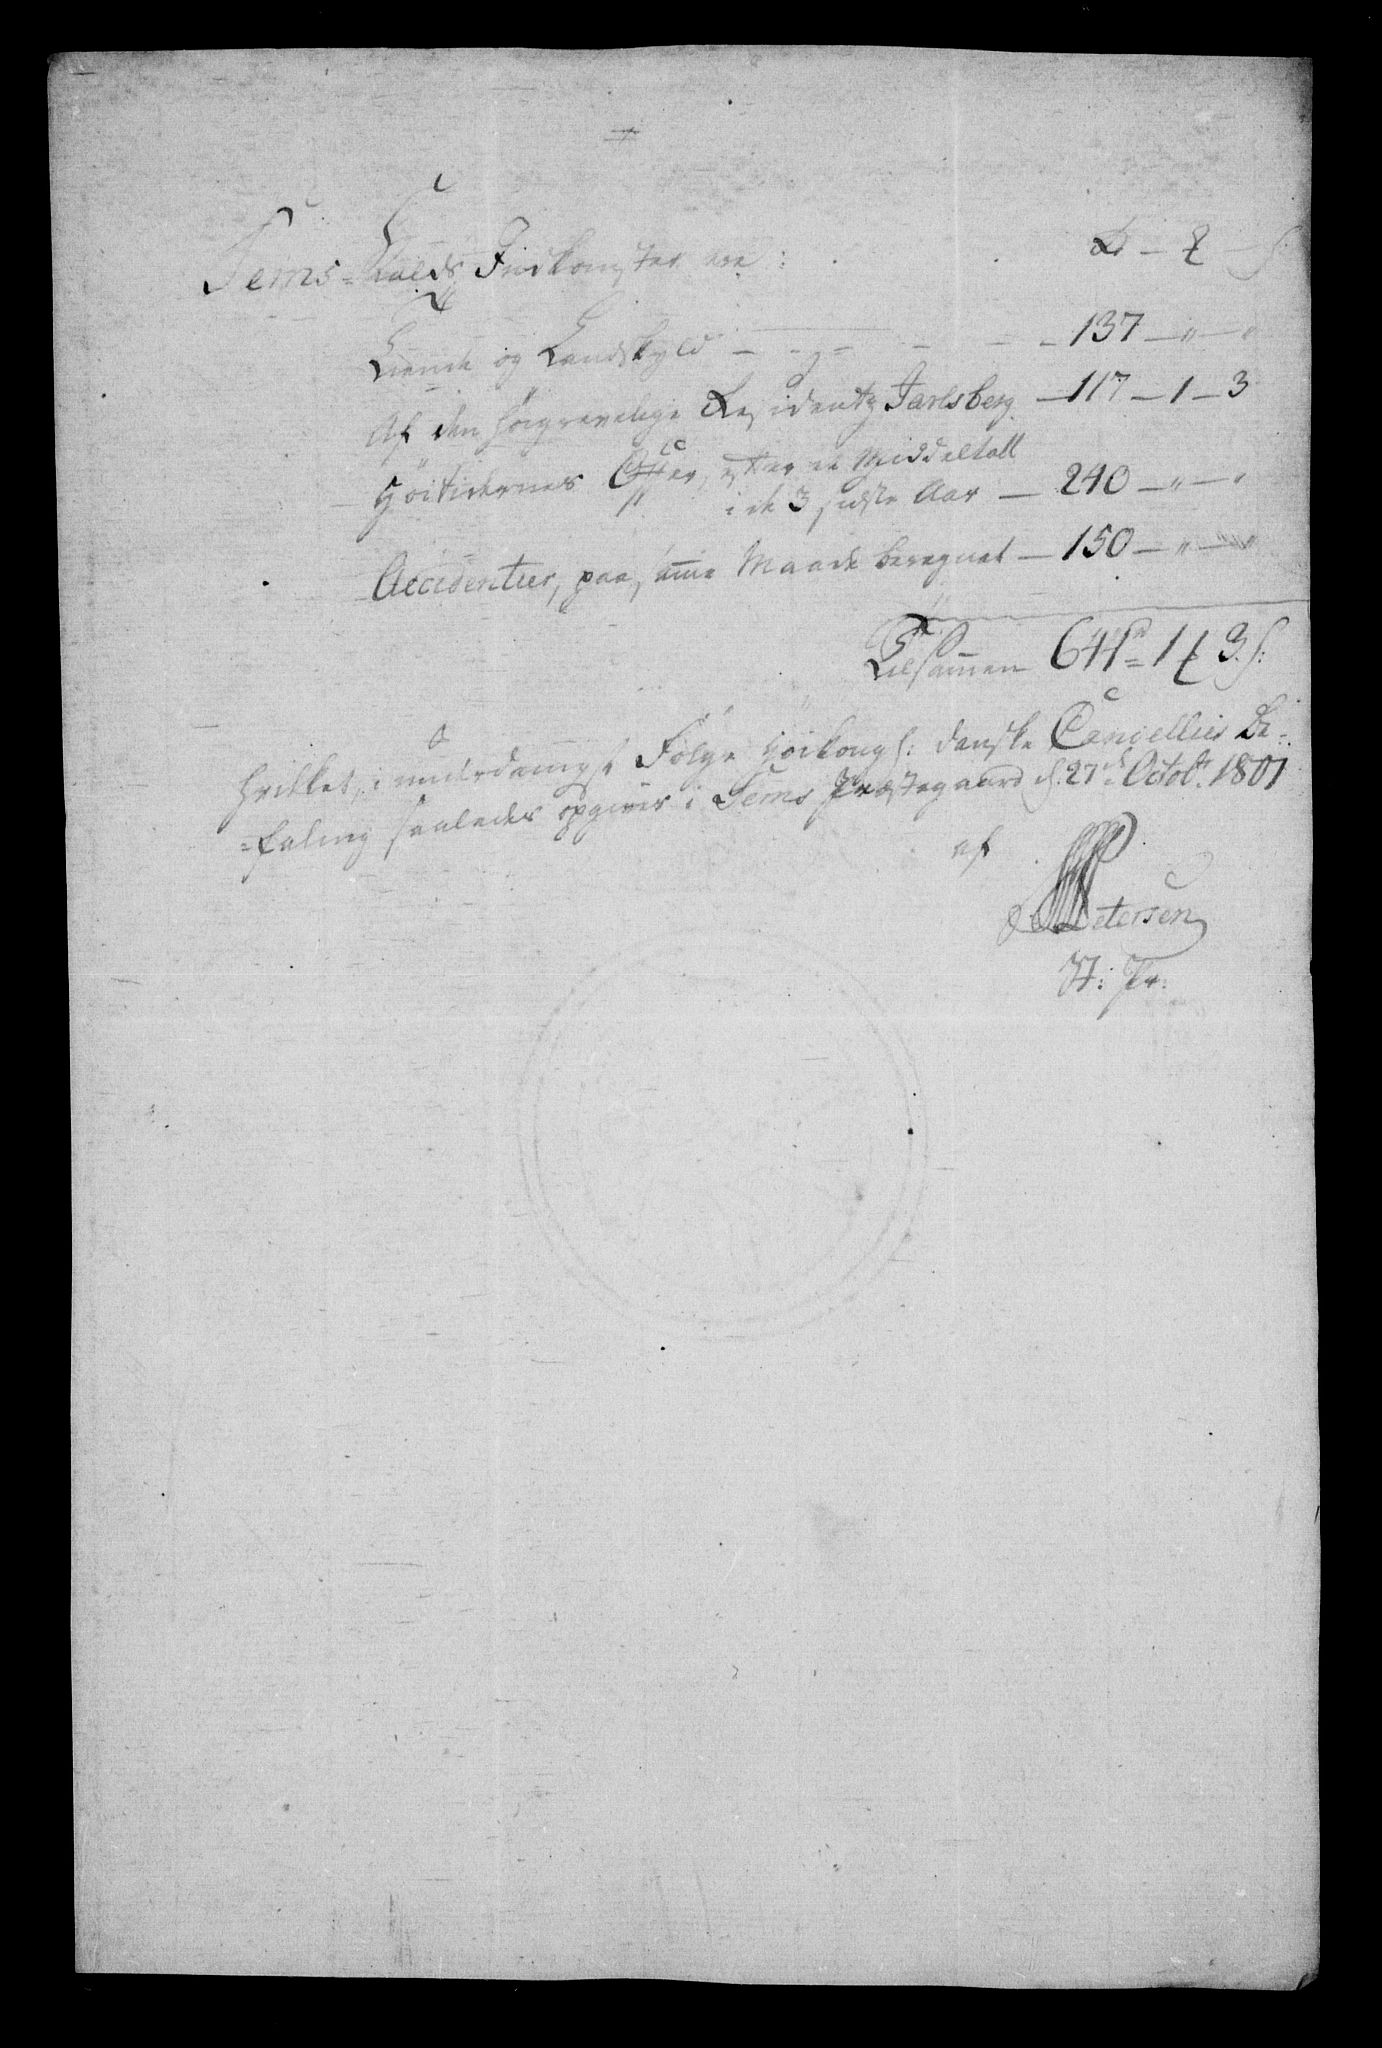 Sems-Kalds Indkomster ere: Rd — ʒ — s
Tiende og Landskyld — 137 — „ — „
Af den høigrevelige Residentz Jarlsberg — 117 — 1 — 3
Høitidernes Offer, efter et Middeltall
i de 3 sidste Aar — 240 — „ — „
Accidentier, paa samme Maade beregnet — 150 — „ — „
Tilsammen 644rd 1ʒ 3s:
Hvilket, i underdanigst Følge høikongl: danske Cancellies Be-
-faling saaledes opgives i Sems Præstegaard d. 27de Octobr. 1801
af
Petersen